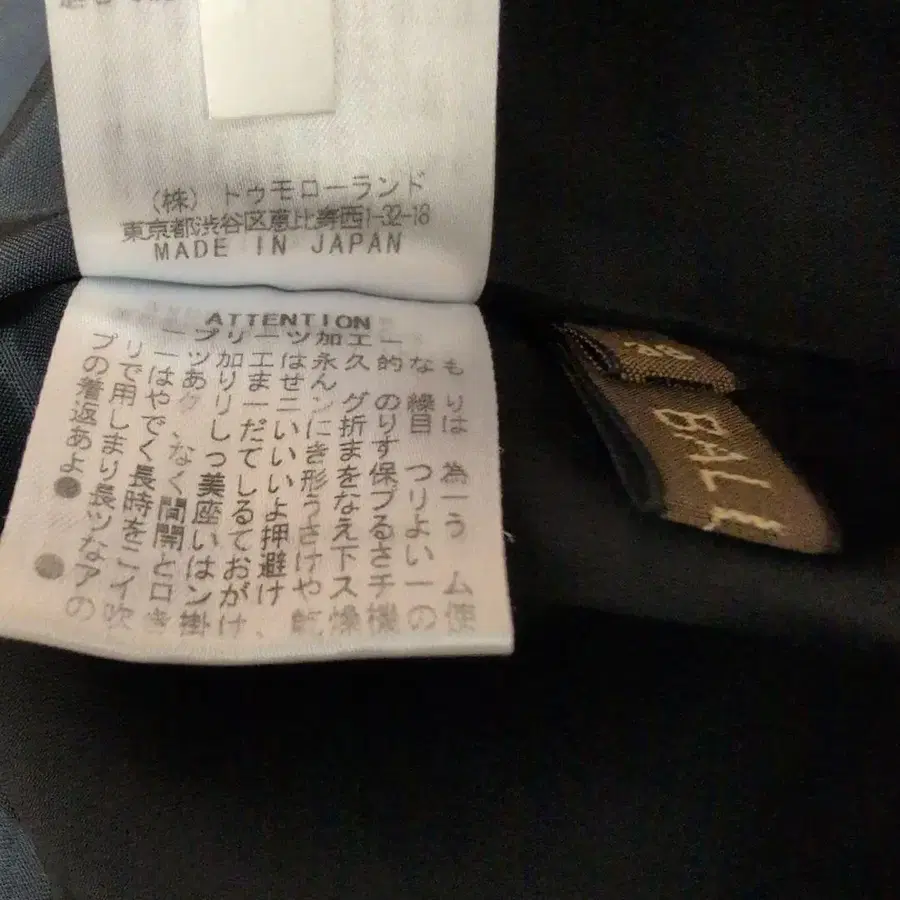 (株)トゥモローランド
東京都渋谷区恵比寿西1-32-18
MADE IN JAPAN
ATTENTION
プリーツ加工は永久的なも
のではありません
着用やクリーニングの繰り
返しで、しだいに折り目は
あまくなってきます
●より長く美しい形を保つ為
長時間座るようなプリー
ツを開いて押さえるよう
なことはお避け下さい
●アイロンがけやスチーム
の吹き掛け、乾燥機の使
BALL